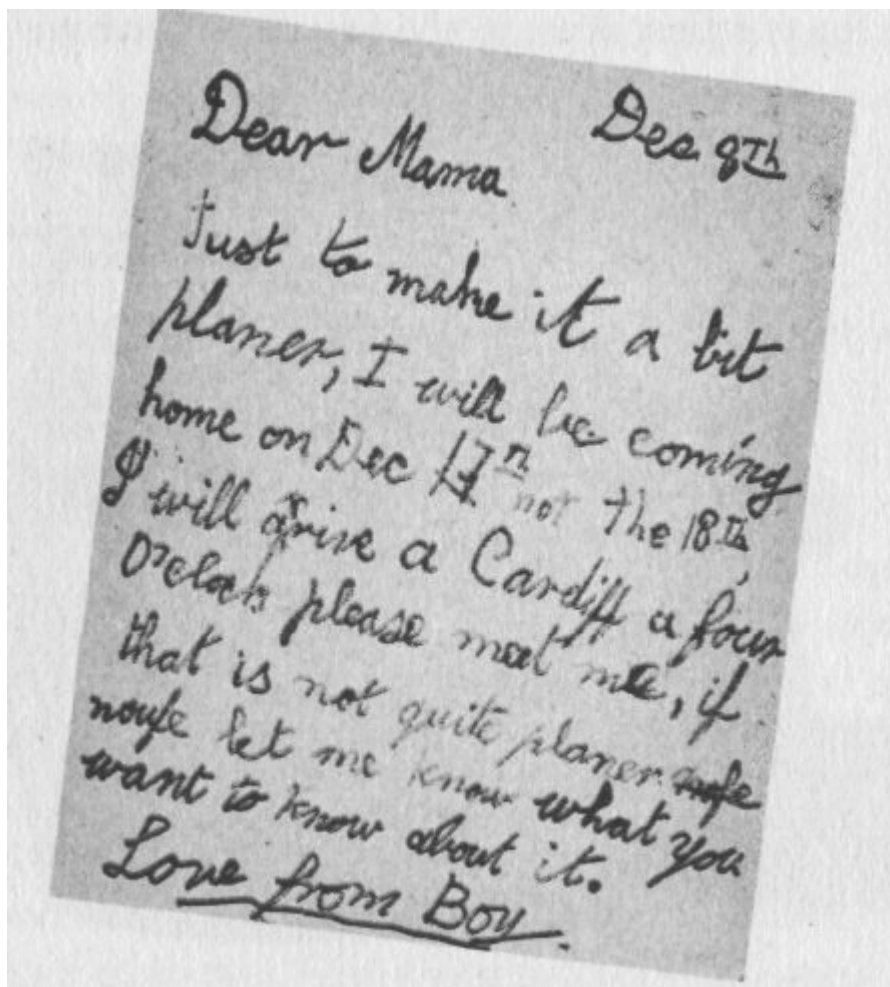 Dec 8Th
Dear Mama
Just to make it a bit
planer, I will be coming
home on Dec 17n not the 18Th,
I will arive a Cardiff a four
O'clock please meet me, if
that is not quite planer
noufe let me know what you
want to know about it.
Love from Boy